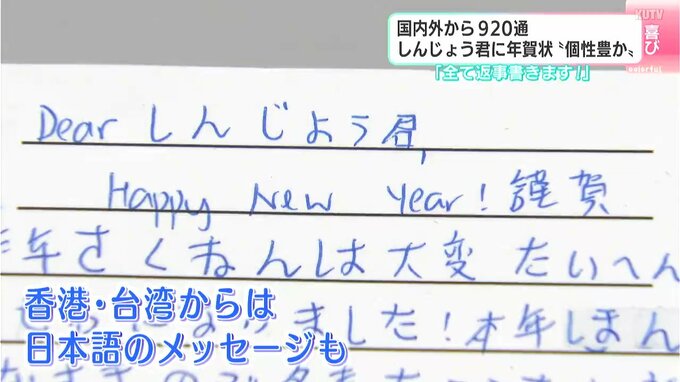 KUTV
国内外から920通
しんじょう君に年賀状〝個性豊か〟
「全て返事書きます!」
喜び
colorful
Dear しんじょう君,
Happy New Year! 謹賀
年さくねんは大変たいへん
ました!本年ほん
香港・台湾からは
日本語のメッセージも